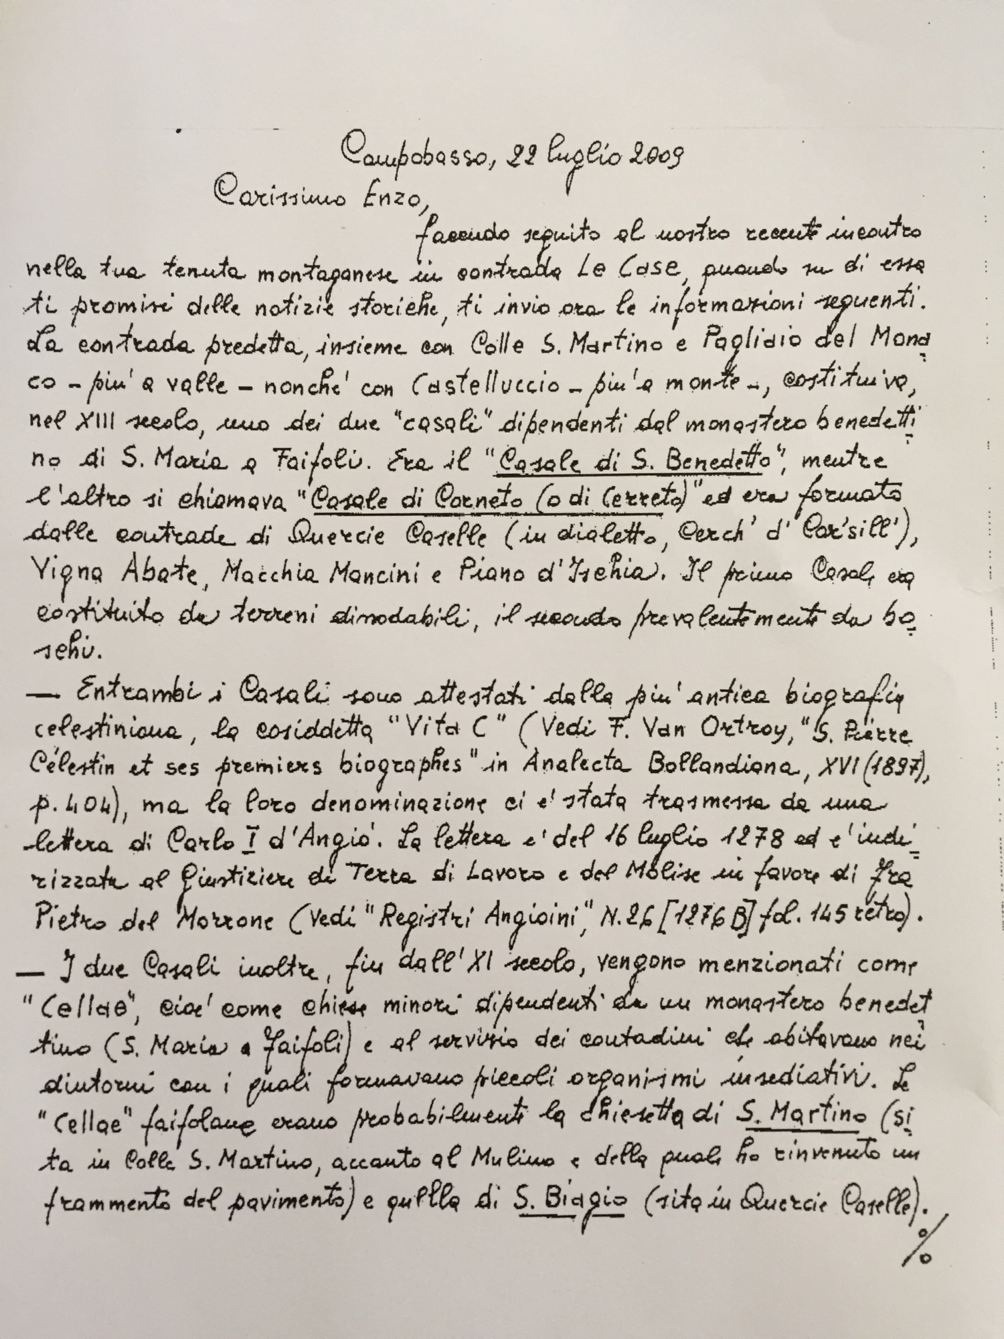 Campobasso, 22 luglio 2009
Carissimo Enzo,
facendo seguito al nostro recente incontro
nella tua tenuta montaganese in contrada Le Case, quando su di essa
ti promisi delle notizie storiche, ti invio ora le informazioni seguenti.
La contrada predetta, insieme con Colle S. Martino e Paglidio del Mona
co - piu' a valle - nonche' con Castelluccio - piu' a monte -, costituiva,
nel XIII secolo, uno dei due "casali" dipendenti dal monastero benedetti
no di S. Maria a Faifoli. Era il "Casale di S. Benedetto", mentre
l'altro si chiamava "Casale di Corneto (o di Cerreto)" ed era formato
dalle contrade di Quercie Caselle (in dialetto, Cerch' d' Car'sill'),
Vigna Abate, Macchia Mancini e Piano d'Ischia. Il primo Casale era
costituito da terreni dissodabili, il secondo prevalentemente da bo
schi.
— Entrambi i Casali sono attestati dalla piu' antica biografia
celestiniana, la cosiddetta "Vita C" (Vedi F. Van Ortroy, "S. Pierre
Célestin et ses premiers biographes" in Analecta Bollandiana, XVI (1897),
p. 404), ma la loro denominazione ci e' stata trasmessa da una
lettera di Carlo I d'Angio'. La lettera e' del 16 luglio 1278 ed e' indi
rizzata al Giustiziere di Terra di Lavoro e del Molise in favore di fra
Pietro del Morrone (Vedi "Registri Angioini", N. 26 [1276 B] fol. 145 retro).
— I due Casali inoltre, fin dall'XI secolo, vengono menzionati come
"Cellae", cioe' come chiese minori dipendenti da un monastero benedet
tino (S. Maria a Faifoli) e al servizio dei contadini che abitavano nei
dintorni con i quali formavano piccoli organismi insediativi. Le
"Cellae" faifolane erano probabilmente la chiesetta di S. Martino (si
ta in Colle S. Martino, accanto al Mulino e della quale ho rinvenuto un
frammento del pavimento) e qullla di S. Biagio (sita in Quercie Caselle).
%